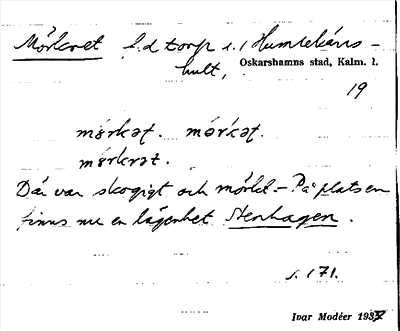 Mörkret f.d torp u./ Humlekärrs-
hult, Oskarshamns stad, Kalm. l.
19
mørkət. mórkət.
mørkrət.
Där var skogigt och mörkt. – På platsen
finns nu en lägenhet Stenhagen.
s. 171.
Ivar Modéer 1937